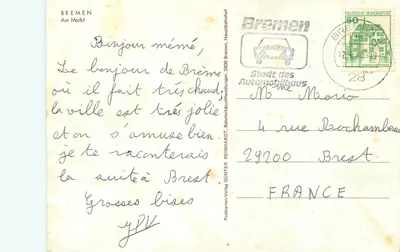 BREMEN
Am Markt
Bonjour mémé,
Le bonjour de Brème
où il fait très chaud,
la ville est très jolie
et on s'amuse bien
je te raconterais
la suite à Brest.
Grosses bises
Postkarten-Verlag GÜNTER REINHARDT, Bahnhofsbuchhandlungen, 2800 Bremen, Hauptbahnhof
Bremen
Stadt des
Automobilbaus
28
60
Mme Mario
4 rue Rochambeau
29200 Brest.
FRANCE